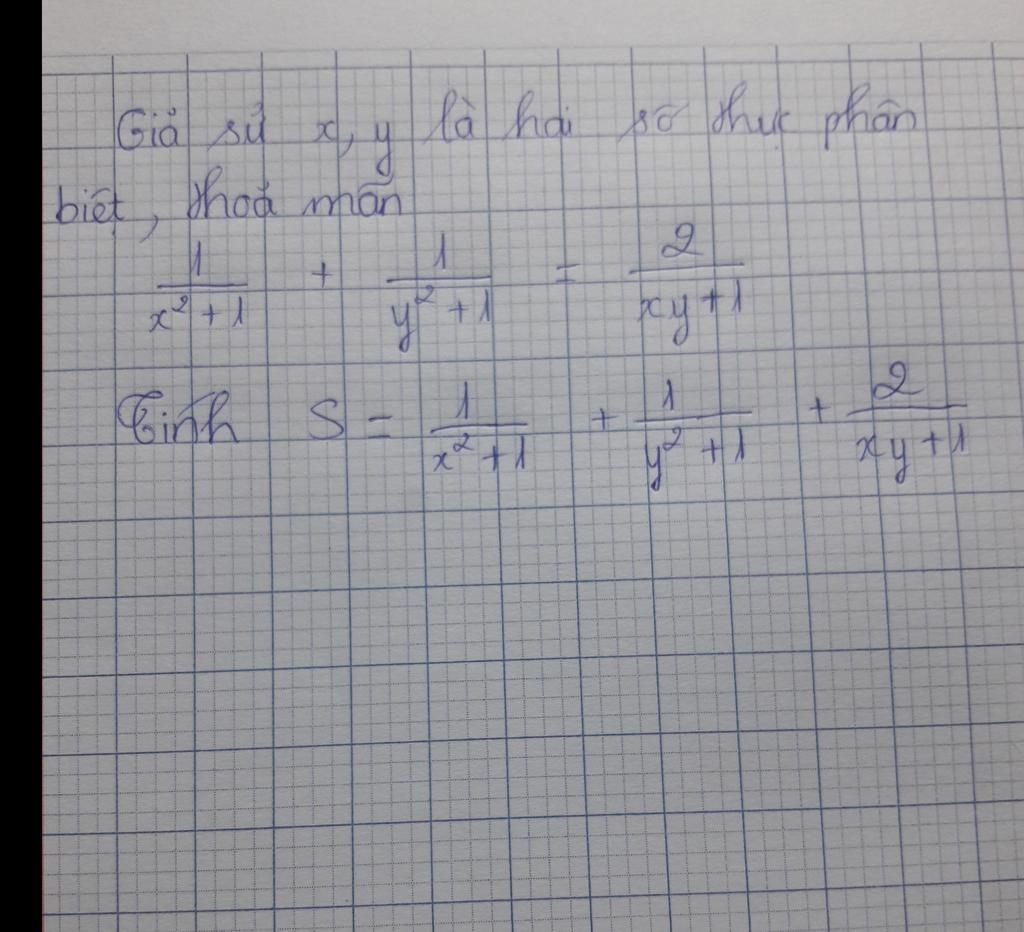 Giả sử x, y là hai số thực phân
biệt, thoả mãn
1/(x² + 1) + 1/(y² + 1) = 2/(xy + 1)
Tính S = 1/(x² + 1) + 1/(y² + 1) + 2/(xy + 1)